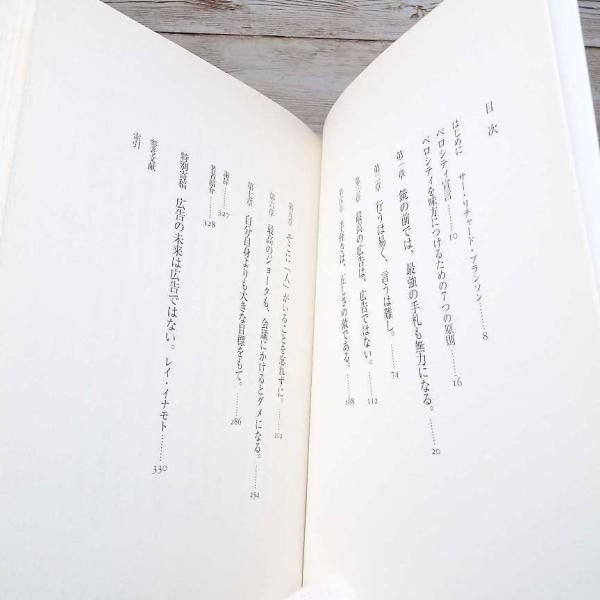 目次
はじめに　サー・リチャード・ブランソン………8
ベロシティ宣言………10
ベロシティを味方につけるための7つの原則………16
第一章　銃の前では、最強の手札も無力になる。………20
第二章　行うは易く、言うは難し。………74
第三章　最高の広告は、広告ではない。………112
第四章　手軽さは、正しさの敵である。………168
第五章　そこに「人」がいることを忘れずに。………212
第六章　最高のジョークも、会議にかけるとダメになる。………252
第七章　自分自身よりも大きな目標をもて。………286
謝辞………327
著者紹介………328
特別寄稿　広告の未来は広告ではない。　レイ・イナモト………330
参考文献
索引